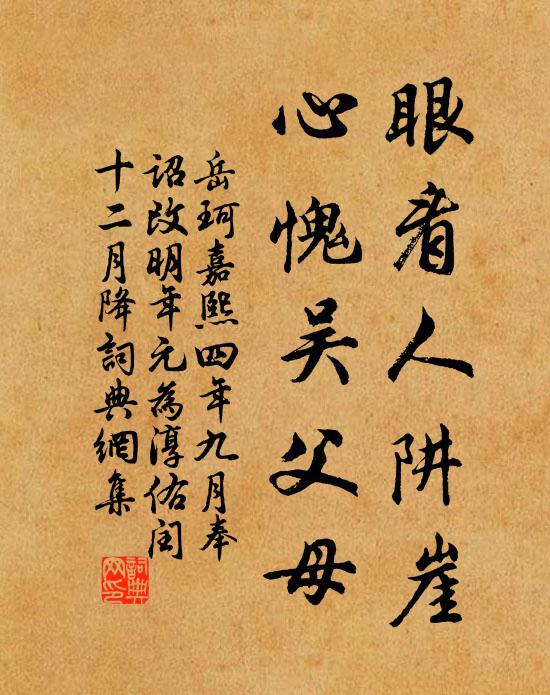 眼看人阱崖
心愧吴父母
岳珂嘉熙四年九月奉
诏改明年元為淳佑闰
十二月降詞典網集
詞典
网印